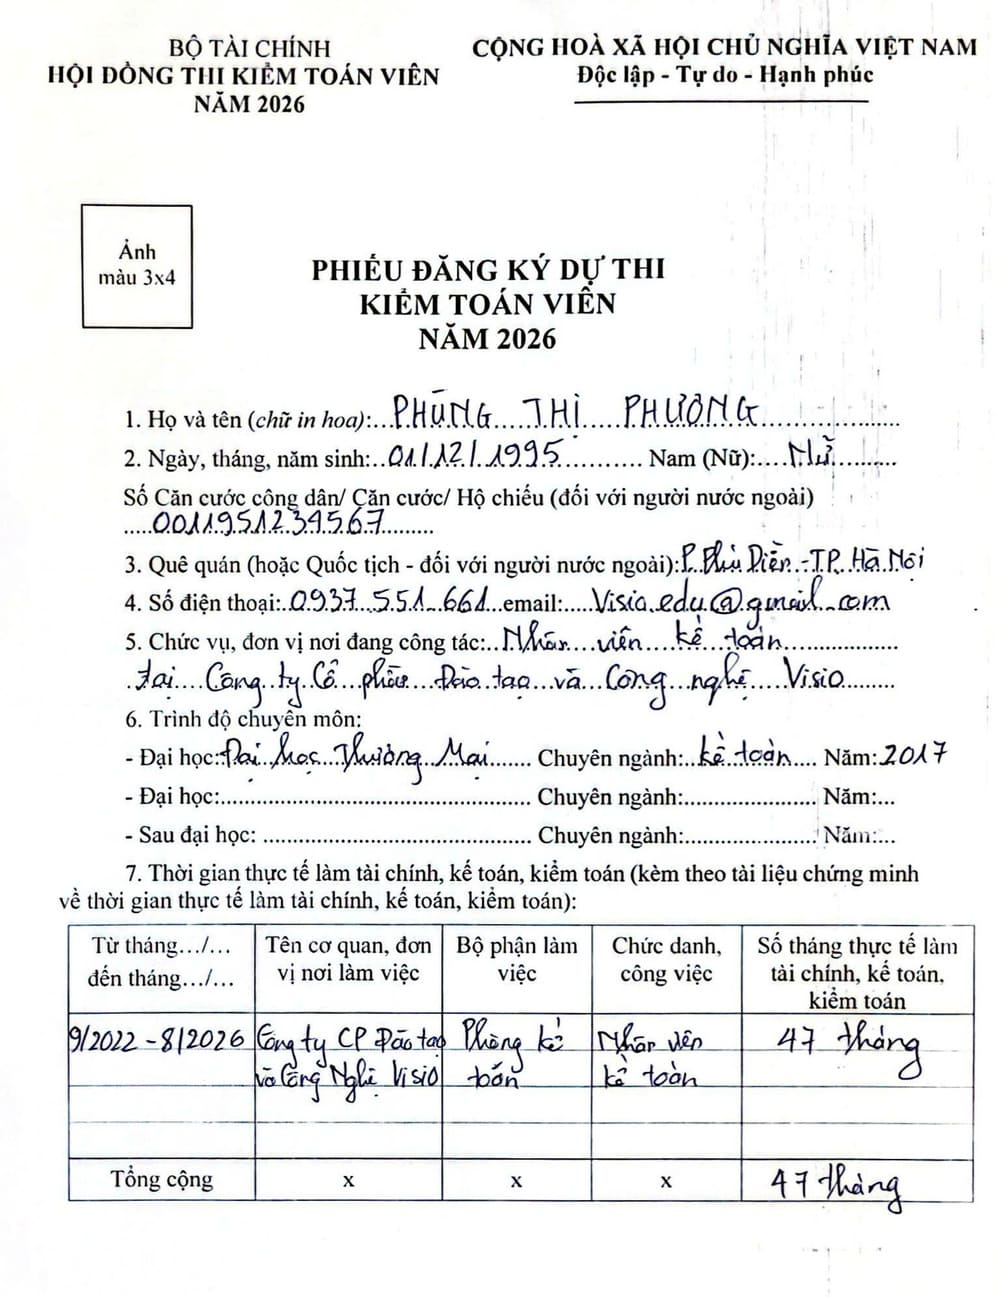 BỘ TÀI CHÍNH
HỘI ĐỒNG THI KIỂM TOÁN VIÊN
NĂM 2026
CỘNG HOÀ XÃ HỘI CHỦ NGHĨA VIỆT NAM
Độc lập - Tự do - Hạnh phúc
Ảnh
màu 3x4
PHIẾU ĐĂNG KÝ DỰ THI
KIỂM TOÁN VIÊN
NĂM 2026
1. Họ và tên (chữ in hoa):...PHÙNG....THỊ.....PHƯƠNG....................
2. Ngày, tháng, năm sinh:..01/12/1995............ Nam (Nữ):....Nữ..........
Số Căn cước công dân/ Căn cước/ Hộ chiếu (đối với người nước ngoài)
.....0011951234567........
3. Quê quán (hoặc Quốc tịch - đối với người nước ngoài):P. Phú Diễn - TP. Hà Nội
4. Số điện thoại:..0937.551.661...email:.....Visio.edu@gmail.com
5. Chức vụ, đơn vị nơi đang công tác:..Nhân....viên....kế...toán..................
.tại....Công...ty Cổ....phần...Đào tạo...và...Công...nghệ....Visio........
6. Trình độ chuyên môn:
- Đại học:Đại học Thương Mại....... Chuyên ngành:..kế toán.... Năm:2017
- Đại học:.................................................. Chuyên ngành:..................... Năm:...
- Sau đại học: ........................................... Chuyên ngành:..................... Năm:...
7. Thời gian thực tế làm tài chính, kế toán, kiểm toán (kèm theo tài liệu chứng minh
về thời gian thực tế làm tài chính, kế toán, kiểm toán):
Từ tháng.../... đến tháng.../... Tên cơ quan, đơn vị nơi làm việc Bộ phận làm việc Chức danh, công việc Số tháng thực tế làm tài chính, kế toán, kiểm toán
9/2022 - 8/2026 Công ty CP Đào tạo và Công Nghệ Visio Phòng kế toán Nhân viên kế toán 47 tháng
Tổng cộng x x x 47 tháng